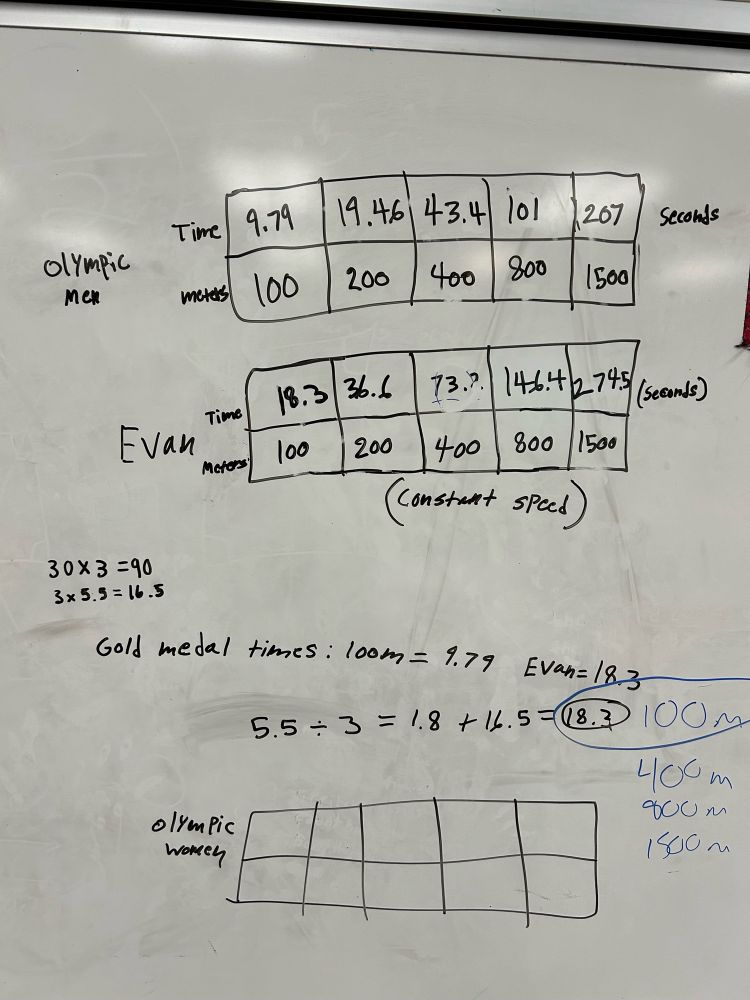 Time 9.79 19.46 43.4 101 207 Seconds
Olympic
men
meters 100 200 400 800 1500
Time 18.3 36.6 73.? 146.4 274.5 (seconds)
Evan
Meters 100 200 400 800 1500
(Constant speed)
30 x 3 = 90
3 x 5.5 = 16.5
Gold medal times: 100m = 9.79 Evan = 18.3
5.5 ÷ 3 = 1.8 + 16.5 = 18.3 100m
400m
800m
1500m
Olympic
women